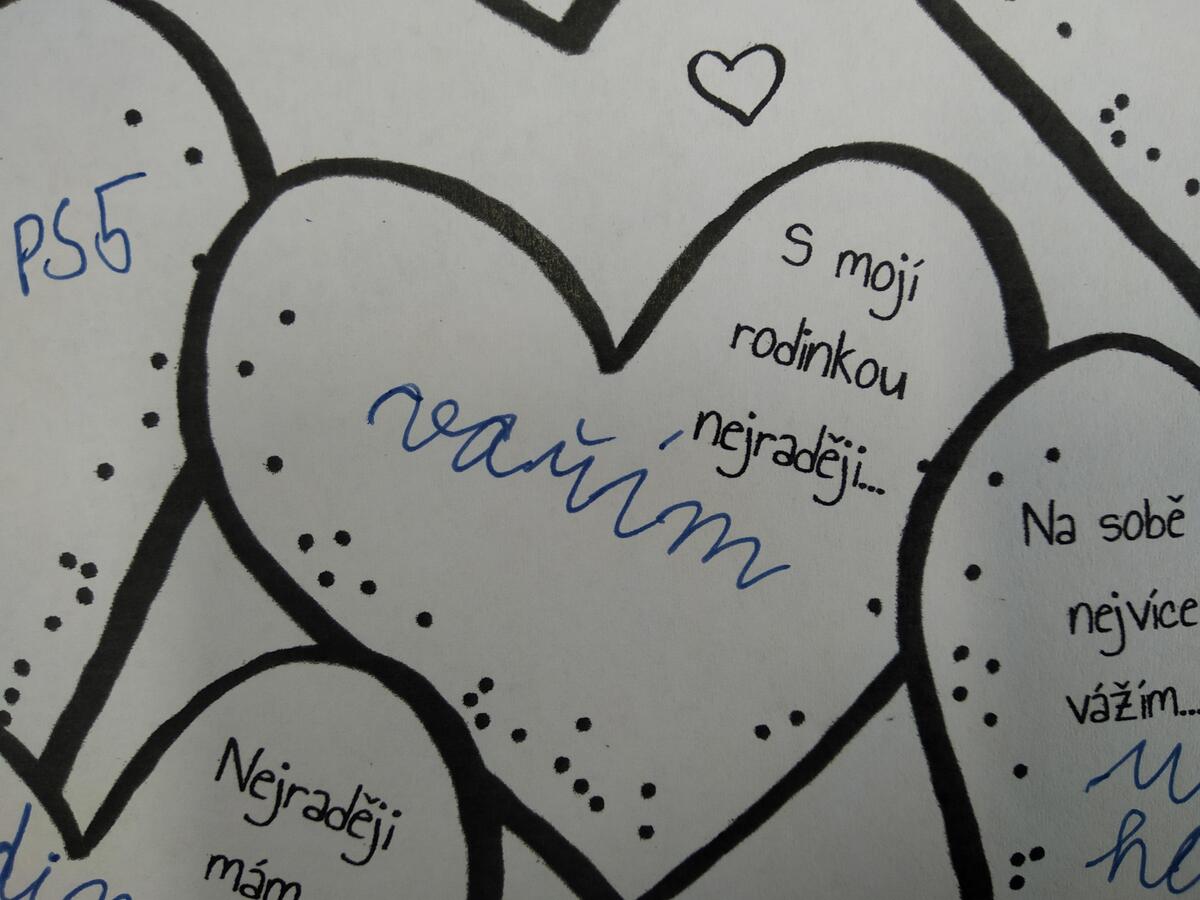 PS5
S mojí
rodinkou
nejraději...
vařím
Na sobě
nejvíce
vážím...
Nejraději
mám